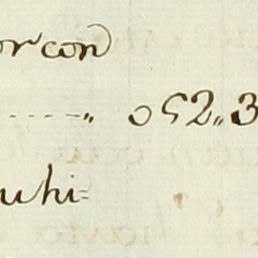 orcon
----- „ 052„3
uhi=